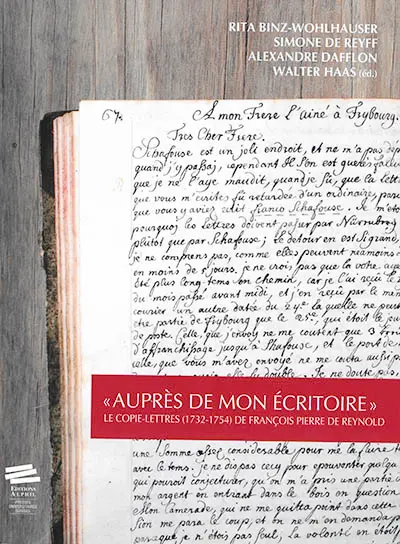 RITA BINZ-WOHLHAUSER
SIMONE DE REYFF
ALEXANDRE DAFFLON
WALTER HAAS (éd.)
67.
A mon Frere l'ainé à Frybourg.
Tres Cher Frere.
Schafouse est un joli endroit, et ne m'a pas
quand j'y passaj, cependant Il s'en est
que je l'aye maudit, quand je sû, que la
que vous m'écrites fut retardée d'un ordinaire,
que vous y aviés Franco Schafouse. Je
pourquoj les Lettres doivent passer par Nürnberg
plûtot que par Schafouse; le detour en est si grand,
je ne comprens pas, comme elles peuvent néamoins
en moins de jours. je ne crois pas que la votre
été plus long-tems en chemin, car je l'ai reçu le
du mois passé avant midi, et j'en reçus par le
courier un autre daté du 24e la quelle ne
etre partie de Frybourg que le 25e, qui étoit le
de poste. Celle que j'envoy ne me coutent que 3
d'affranchissage jusqu'à Schafouse, et le port de
velle, que vous m'avez envoyé ne me couta aussi
le double. Je ne doute pas,
« AUPRÈS DE MON ÉCRITOIRE »
LE COPIE-LETTRES (1732-1754) DE FRANÇOIS PIERRE DE REYNOLD
une somme assez considerable pour me la faire
avec le tems. je ne dis pas cecy pour epouventer
qui pouroit conjecturer, qu'on m'a pris une partie
mon argent en entrant dans le bois en question
Mon Camerade, qui ne me quitta point dans cette
sion me para le coup, et on ne m'en demanda
parceque je n'étois pas seul, la volonté en étoit
EDITIONS
ALPHIL
PRESSES
UNIVERSITAIRES
SUISSES